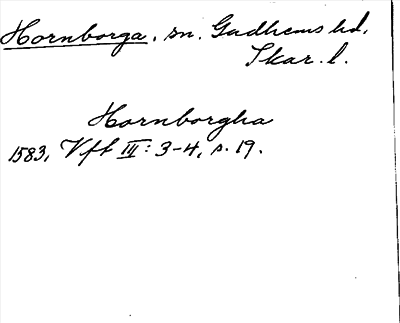 Hornborga, sn. Gudhems hd,
Skar. l.
Hornborgha
1583, Vft III: 3-4, s. 19.